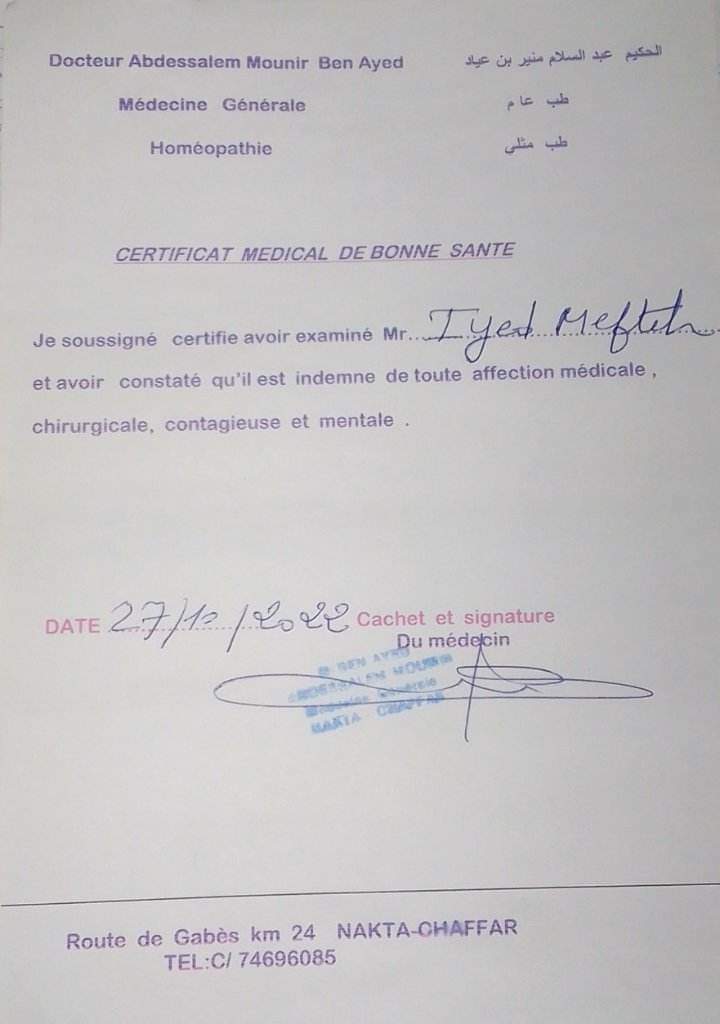 Docteur Abdessalem Mounir Ben Ayed
الحكيم عبد السلام منير بن عياد
Médecine Générale
طب عام
Homéopathie
طب مثلي
CERTIFICAT MEDICAL DE BONNE SANTE
Je soussigné certifie avoir examiné Mr....Iyed Mefteh
et avoir constaté qu'il est indemne de toute affection médicale ,
chirurgicale, contagieuse et mentale .
DATE 27/10/2022 Cachet et signature
Du médecin
BEN AYED
ABDESSALEM MOUNIR
Médecine Générale
NAKTA CHAFFAR
Route de Gabès km 24 NAKTA-CHAFFAR
TEL:C/ 74696085